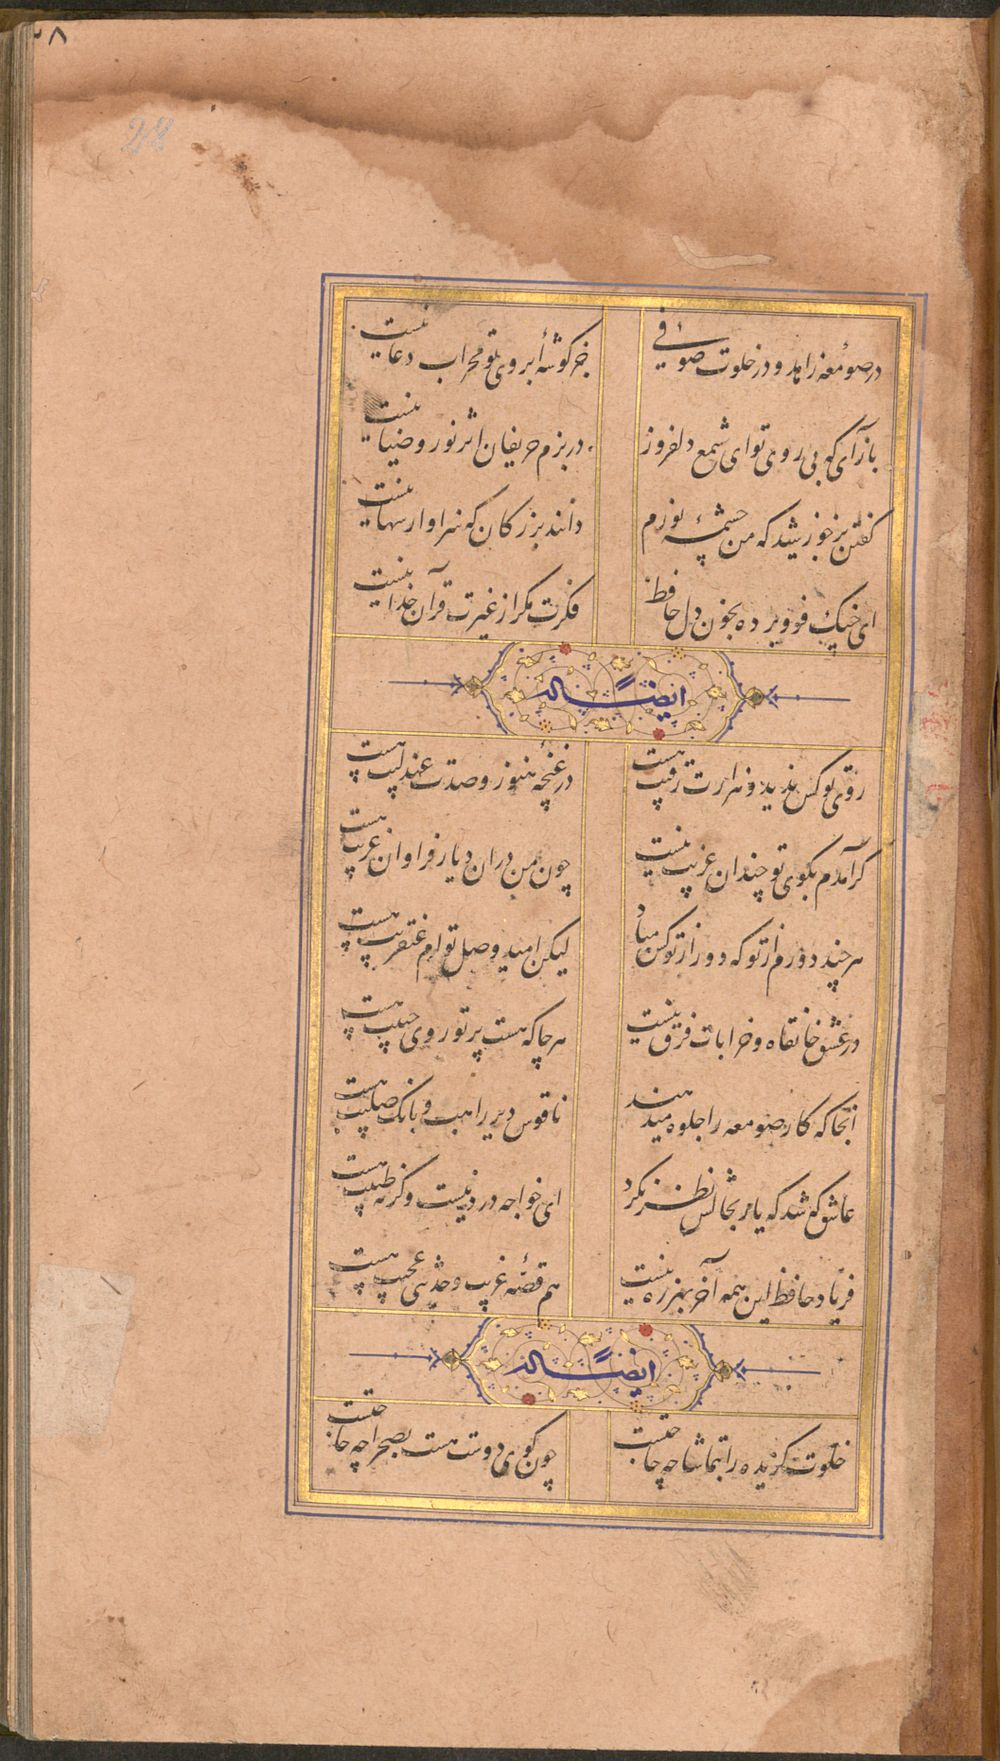 ۲۸
28
در صومعه زاهد و در خلوت صوفی جز گوشهٔ ابروی تو محراب دعا نیست
بازآی که بی روی تو ای شمع دلفروز در بزم حریفان اثر نور و ضیا نیست
گفتن بر خورشید که من چشمهٔ نورم دانند بزرگان که سزاوار سها نیست
ای چنگ فرو برده بخون دل حافظ فکرت مگر از غیرت قرآن خدا نیست
ایضاً له
روی تو کس ندید و هزارت رقیب هست در غنچهٔ هنوز و صدت عندلیب هست
گر آمدم بکوی تو چندان غریب نیست چون من در آن دیار فراوان غریب هست
هر چند دورم از تو که دور از تو کس مباد لیکن امید وصل توام عنقریب هست
در عشق خانقاه و خرابات فرق نیست هر جا که هست پرتو روی حبیب هست
آنجا که کار صومعه را جلوه میدهند ناقوس دیر راهب و بانگ صلیب هست
عاشق که شد که یار بحالش نظر نکرد ای خواجه درد نیست وگرنه طبیب هست
فریاد حافظ این همه آخر بهرزه نیست هم قصهٔ غریب و حدیثی عجیب هست
ایضاً له
خلوت گزیده را بتماشا چه حاجتست چون کوی دوست هست بصحرا چه حاجتست